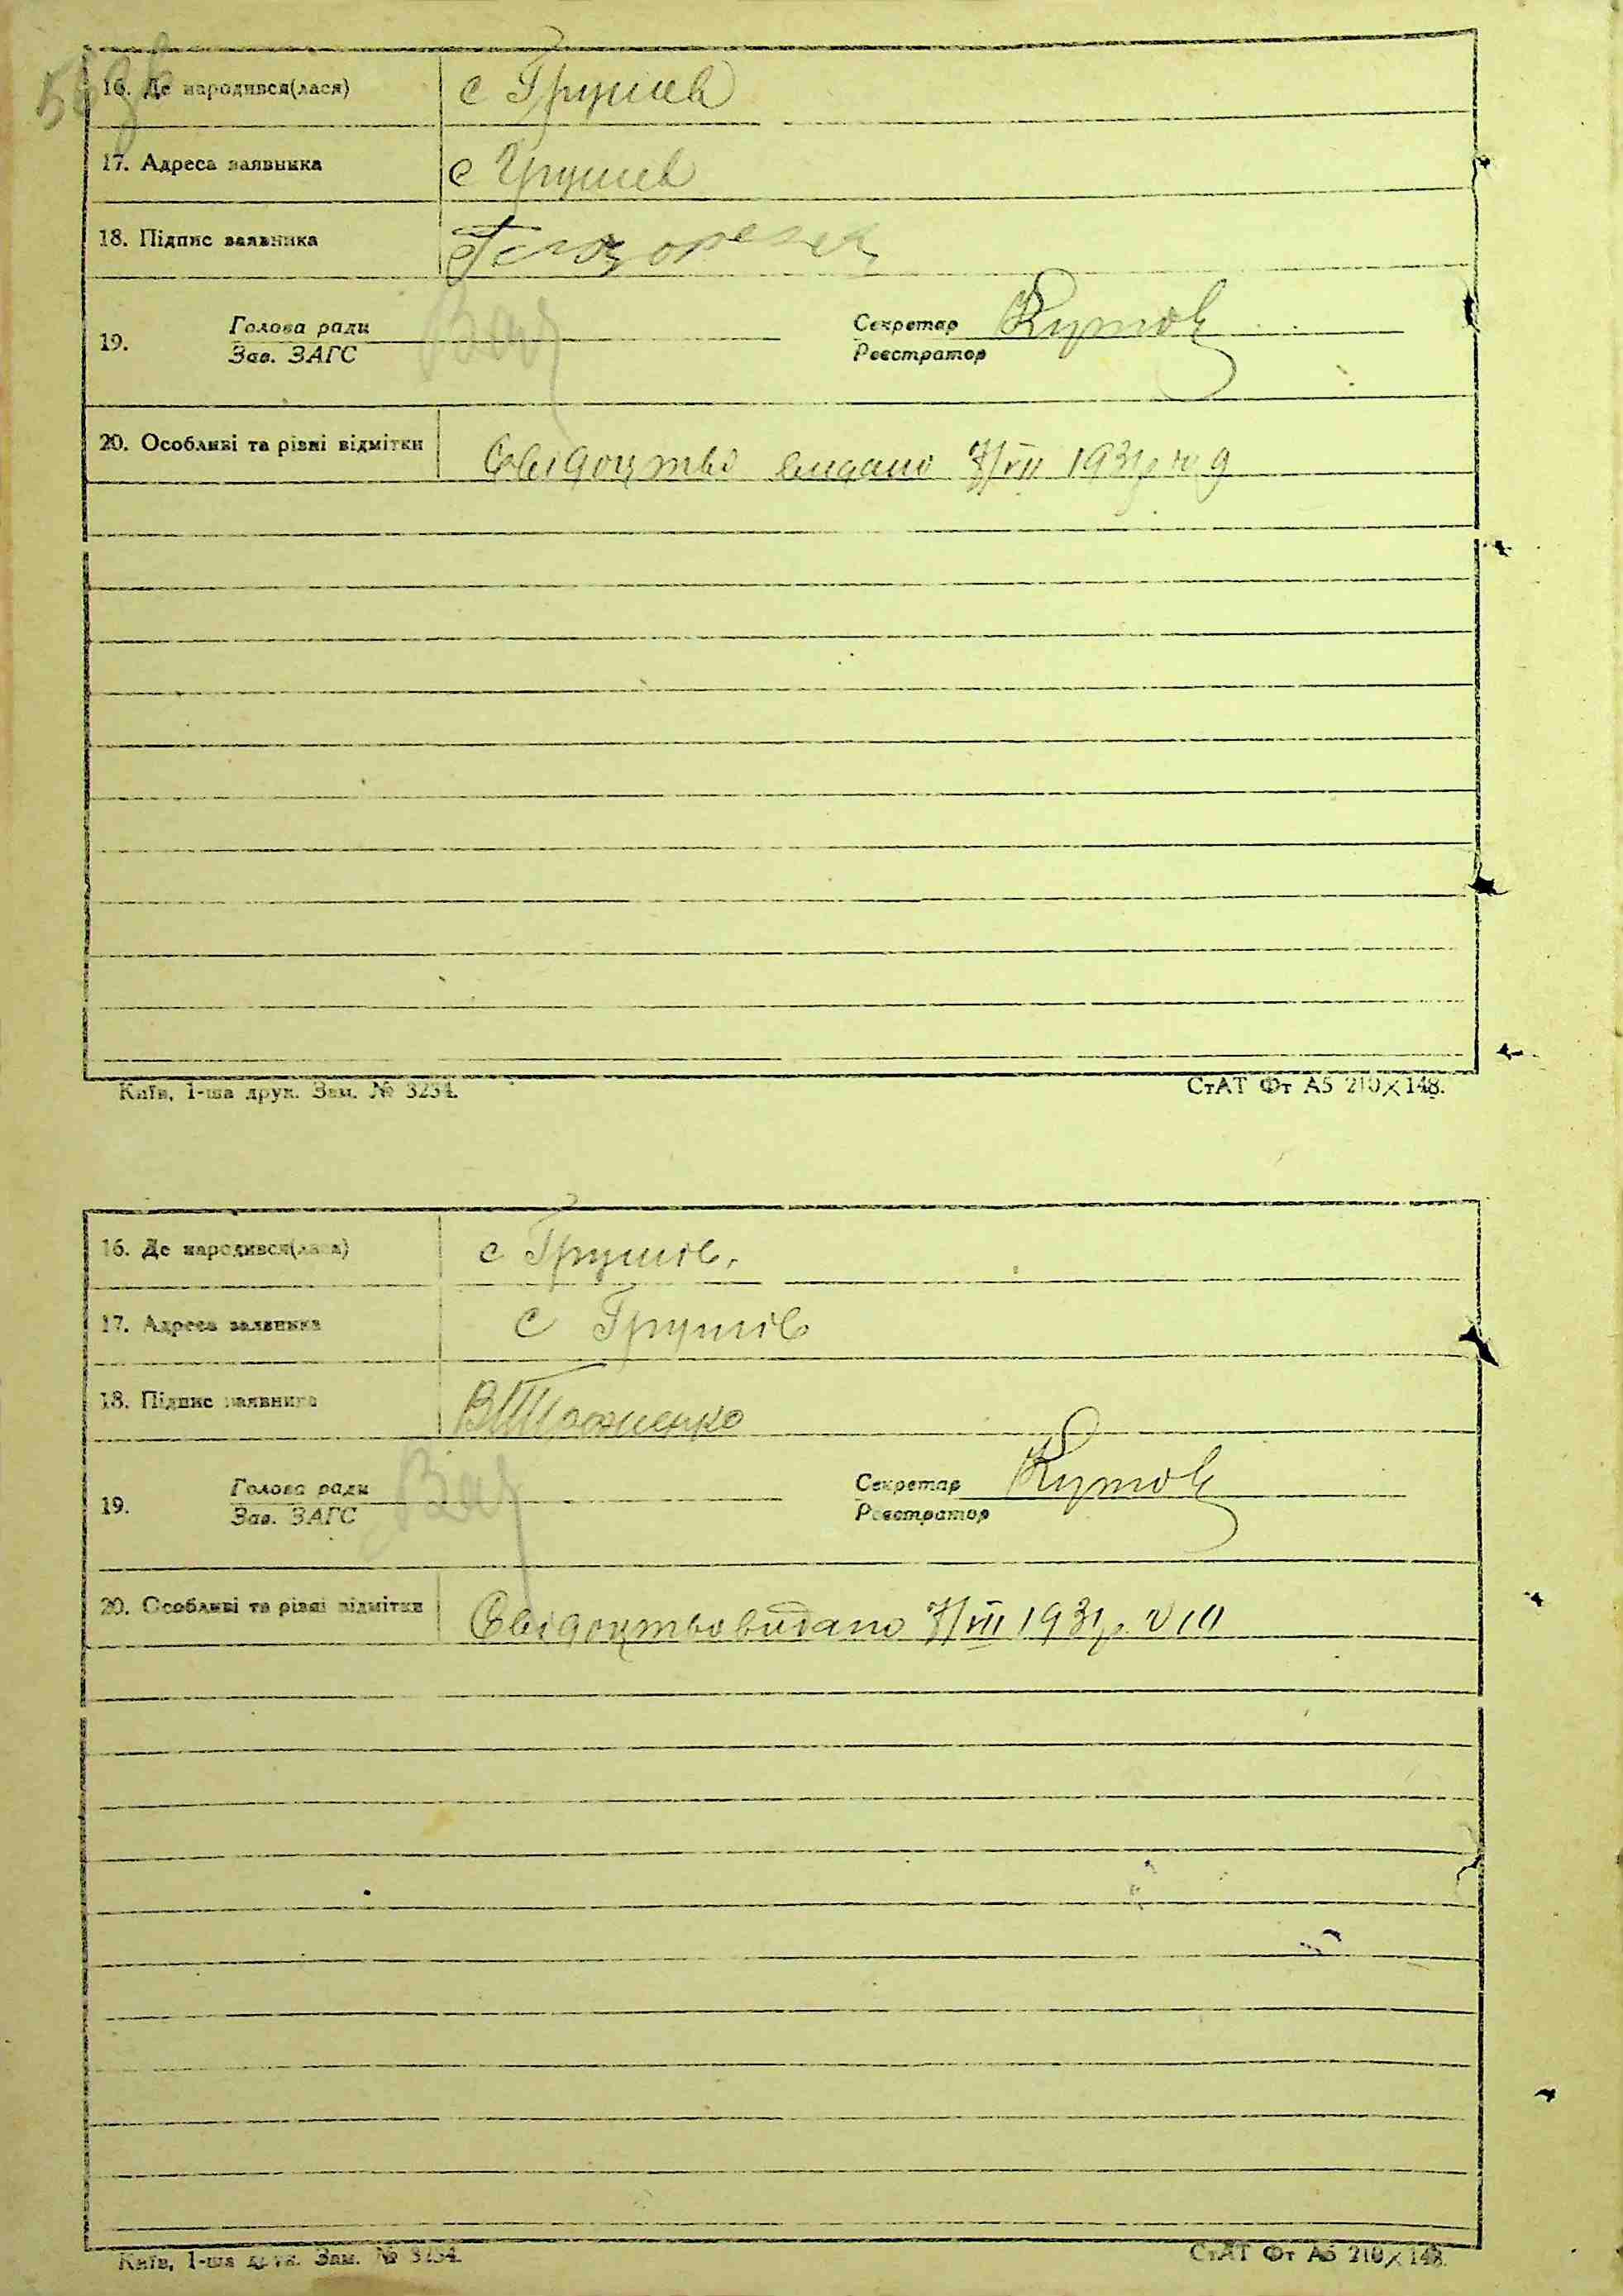 16. Де народився(лася) с Грушев
17. Адреса заявника с Грушев
18. Підпис заявника
19. Голова ради Секретар Кутов
Зав. ЗАГС Реєстратор
20. Особливі та різні відмітки Свідоцтво видано 7/VIII 1931р № 9
Київ, 1-ша друк. Зам. № 3234. СтАТ Фт А5 210×148.
16. Де народився(лася) с Грушів.
17. Адреса заявника с Грушів
18. Підпис заявника
19. Голова ради Секретар Кутов
Зав. ЗАГС Реєстратор
20. Особливі та різні відмітки Свідоцтво видано 7/VIII 1931р.
Київ, 1-ша друк. Зам. № 3234. СтАТ Фт А5 210×148.